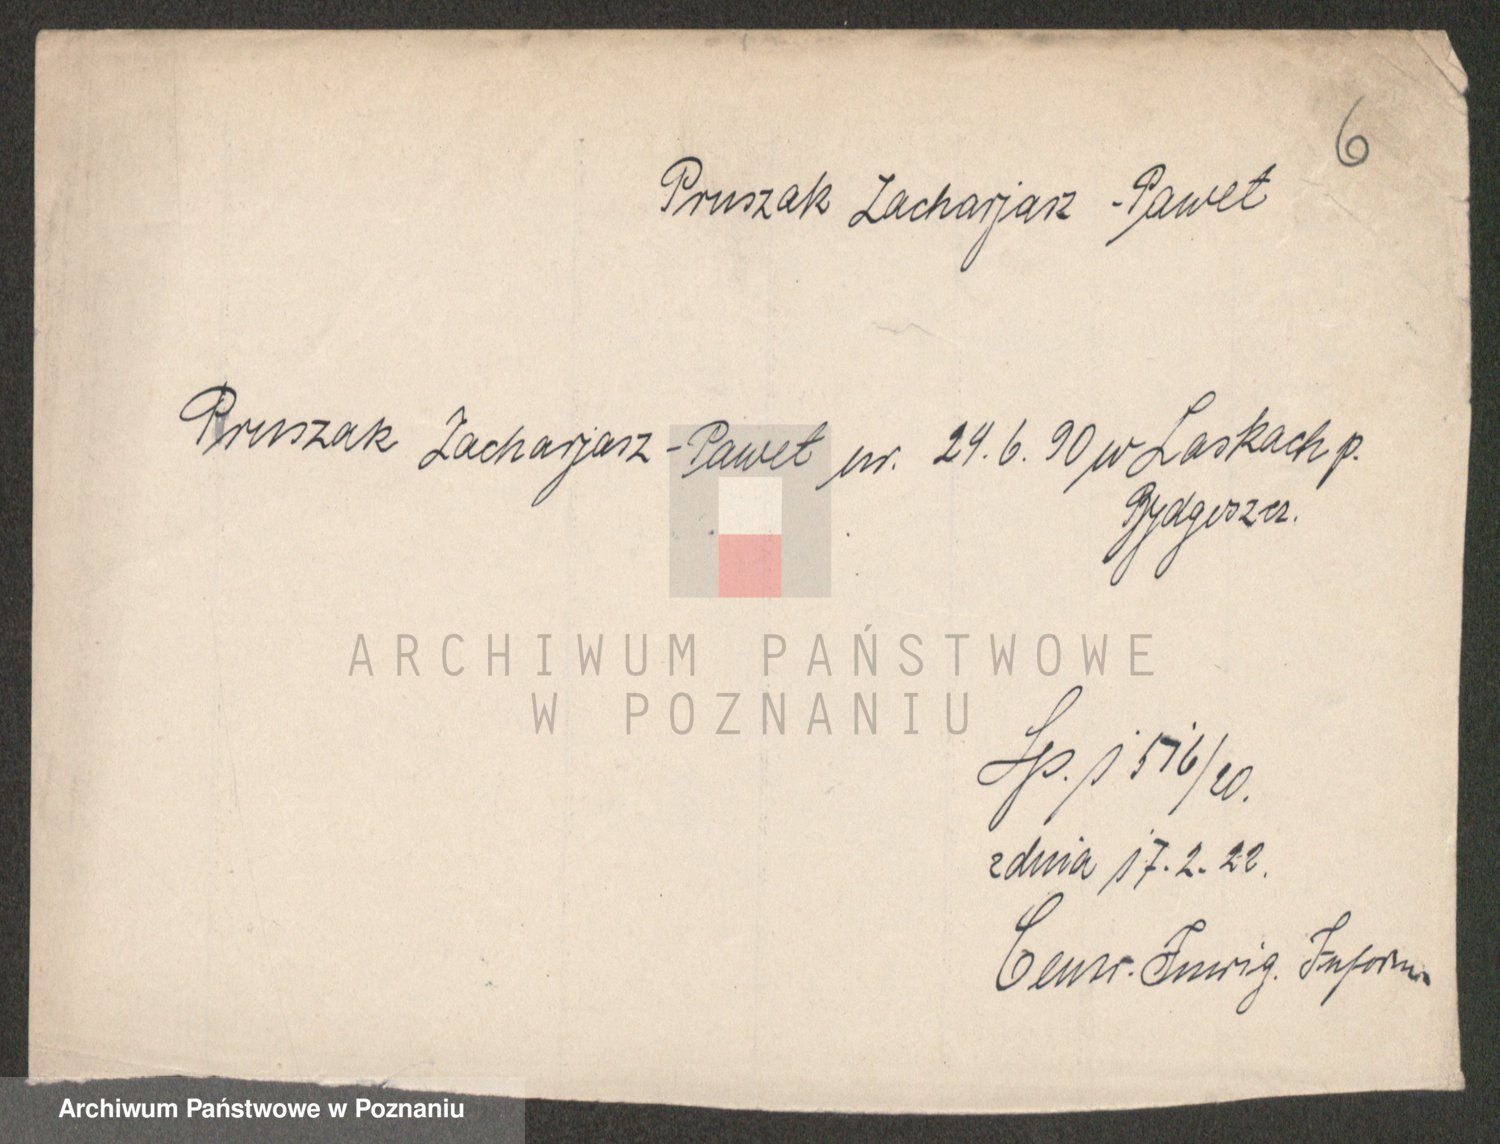 6
Pruszak Zacharjasz - Paweł
Pruszak Zacharjasz - Paweł ur. 24. 6. 90 w Laskach p.
Bydgoszcz.
ARCHIWUM PAŃSTWOWE
W POZNANIU
Lp. 1516/20.
z dnia 17. 2. 22.
Inwig. Inform.
Archiwum Państwowe w Poznaniu